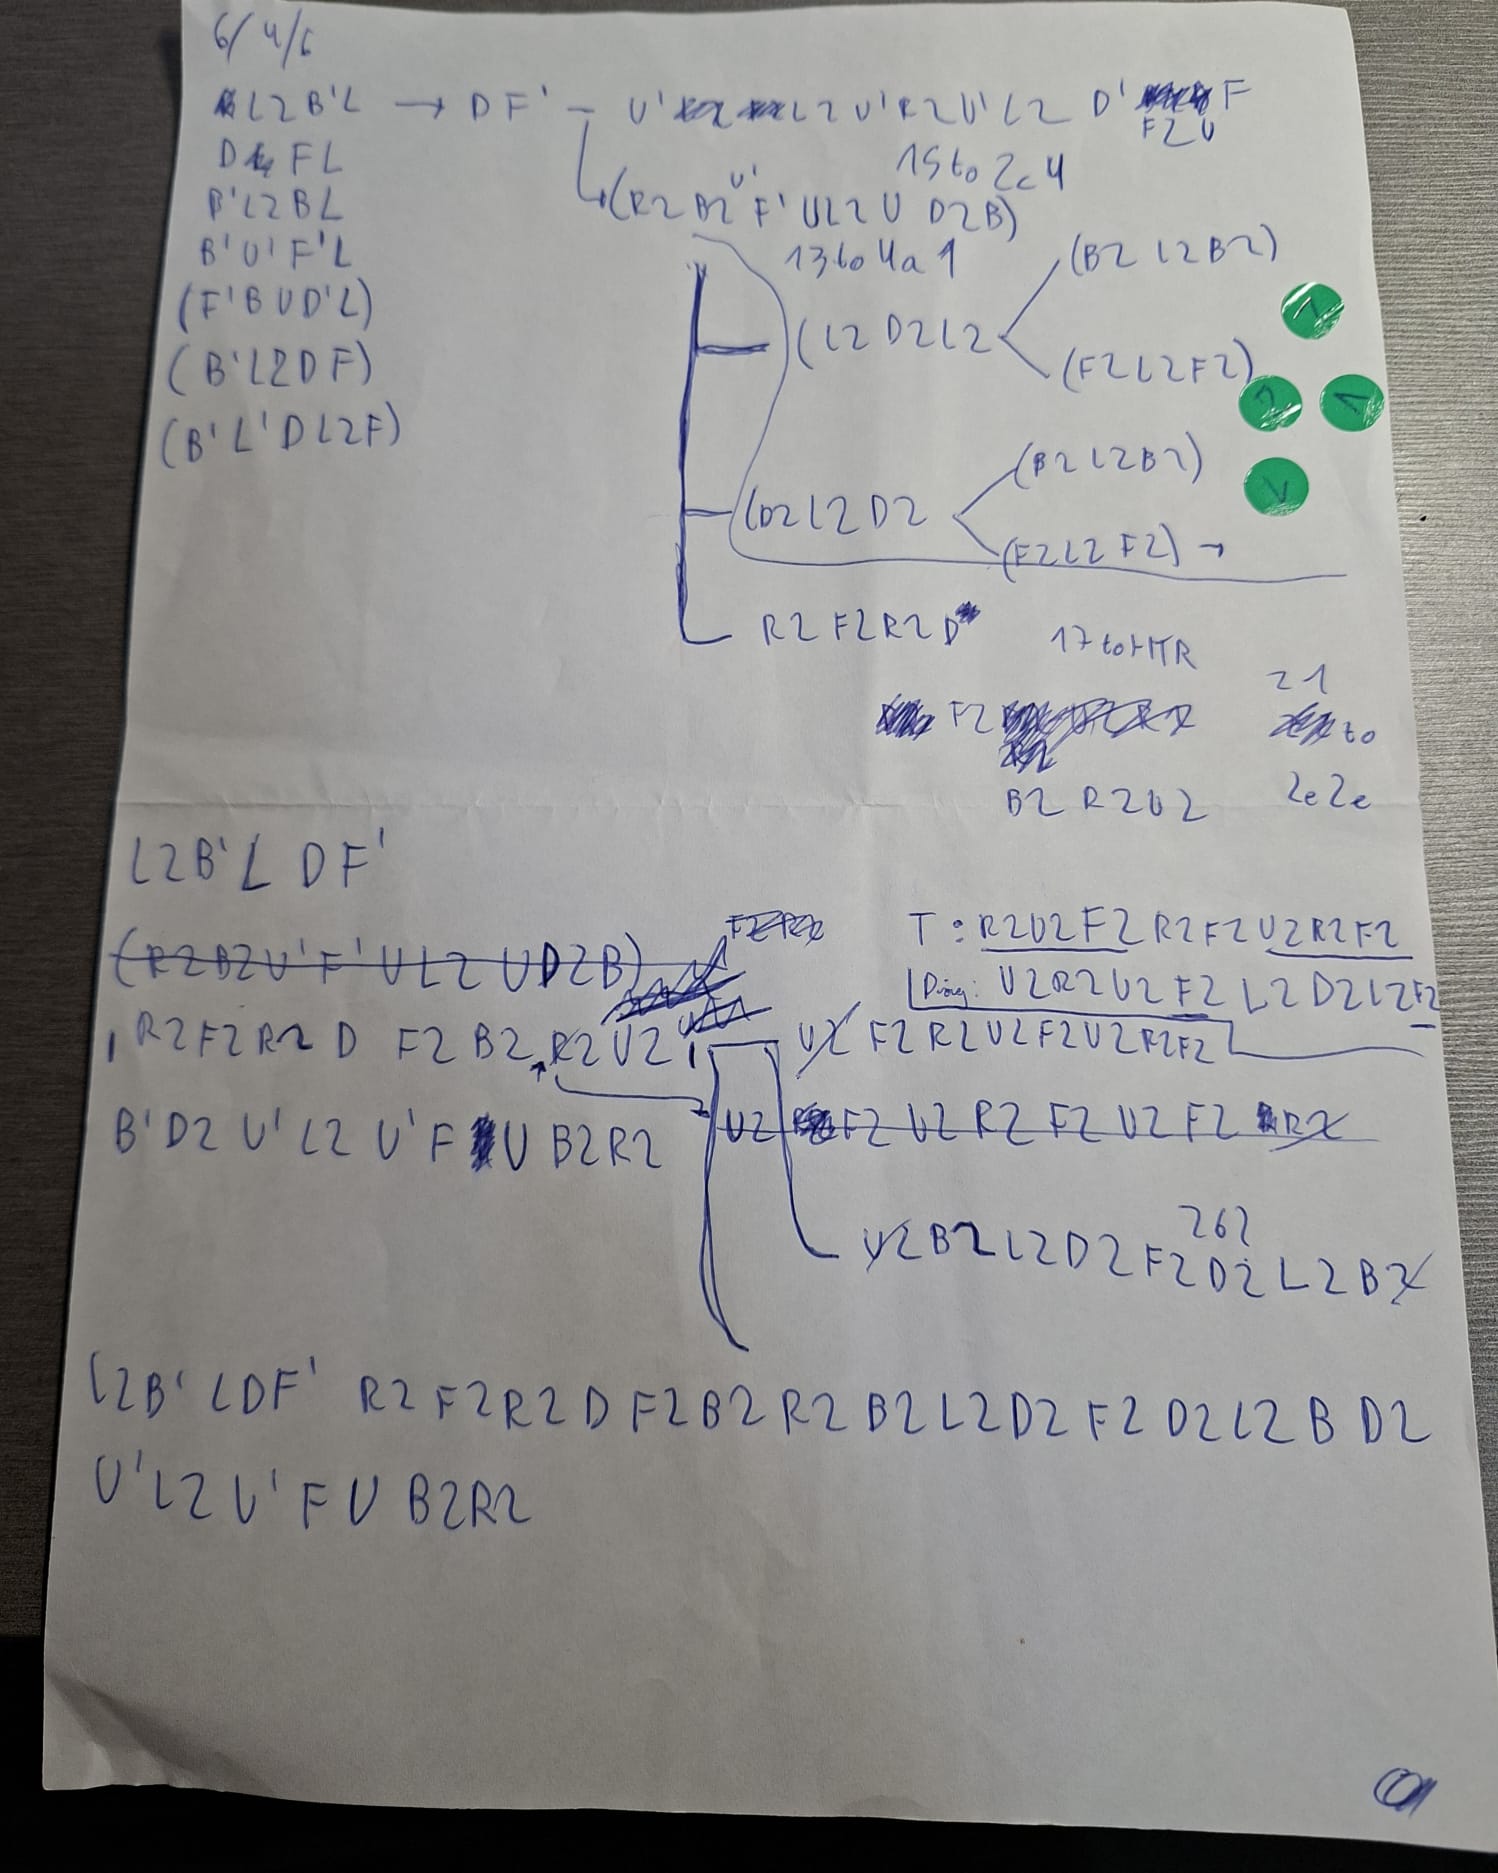 6/4/6
L2 B' L → D F' - U' L2 U' R2 U' L2 D' F
F2 U
D FL
15 to 2c4
B' L2 B L
(R2 B2 U' F' U L2 U D2 B)
B' U' F' L
13 to 4a1
(B2 L2 B2)
(F' B U D' L)
(L2 D2 L2
(F2 L2 F2)
(B' L2 D F)
(B' L' D L2 F)
(B2 L2 B2)
(D2 L2 D2
(F2 L2 F2) →
R2 F2 R2 D
17 to HTR
21
F2
to
B2 R2 U2
2e2e
L2 B' L D F'
(R2 B2 U' F' U L2 U D2 B)
T: R2 U2 F2 R2 F2 U2 R2 F2
Diag: U2 R2 U2 F2 L2 D2 L2 F2
R2 F2 R2 D F2 B2 R2 U2
U2 F2 R2 U2 F2 U2 R2 F2
B' D2 U' L2 U' F U B2 R2
U2 F2 U2 R2 F2 U2 F2 R2
26?
U2 B2 L2 D2 F2 D2 L2 B2
L2 B' L D F' R2 F2 R2 D F2 B2 R2 B2 L2 D2 F2 D2 L2 B D2
U' L2 U' F U B2 R2